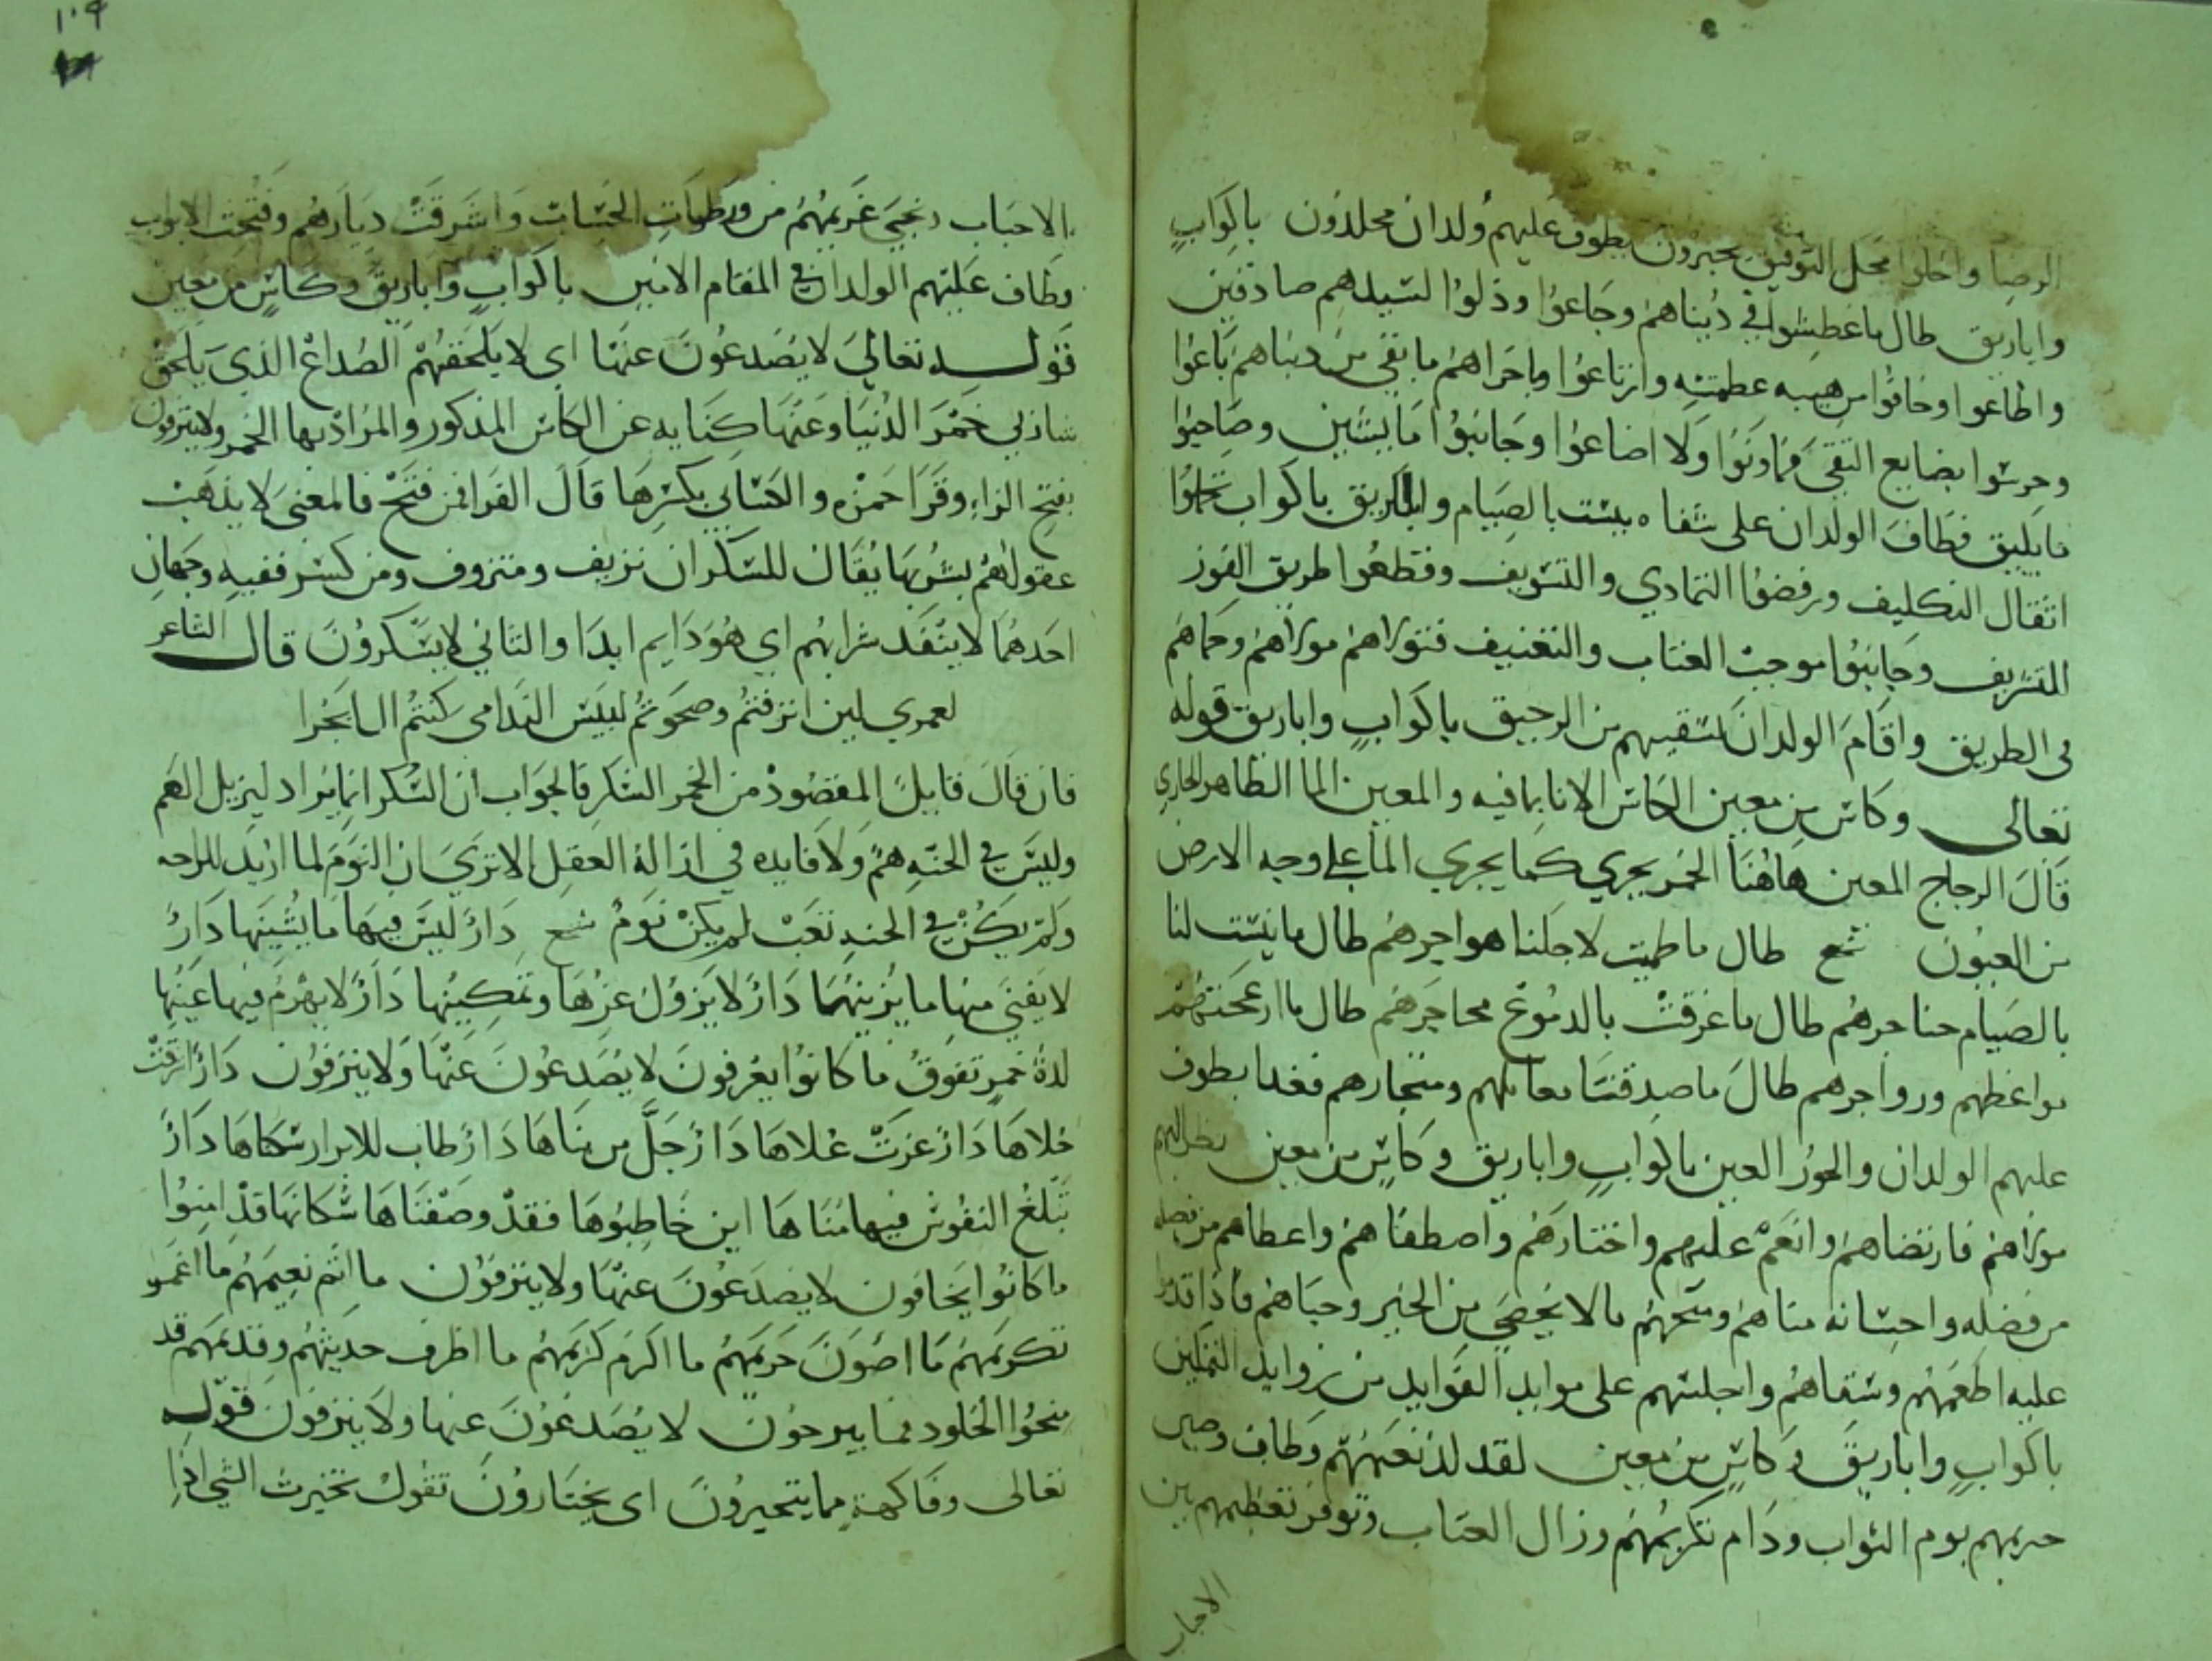 الرضا واحلوا محل التوفيق يحبرون يطوف عليهم ولدان مخلدون باكواب
واباريق طال ما عطشوا في دنياهم وجاعوا وذلوا لسيدهم صادقين
واطاعوا وخافوا من هيبه عظمته وارتاعوا وباخراهم ما بقي من دنياهم باعوا
وحرسوا بضايع التقي فما ونوا ولا اضاعوا وجانبوا ما يشين وصاحبوا
ما يليق فطاف الولدان على شفاه يبست بالصيام واباريق باكواب تحملوا
اثقال التكليف ورفضوا التمادي والتسويف وقطعوا طريق الفوز
الشريف وجانبوا موجب العتاب والتعنيف فتولاهم مولاهم وحماهم
في الطريق واقام الولدان لسقيهم من الرحيق باكواب واباريق قوله
تعالى وكاس من معين الكاس الانا بما فيه والمعين الما الظاهر الجاري
قال الزجاج المعين هاهنا الخمر يجري كما يجري الما على وجه الارض
من العيون شع طال ما ظميت لاجلنا هواجرهم طال ما يبست لنا
بالصيام حناجرهم طال ما غرقت بالدموع محاجرهم طال ما ازعجتهم
مواعظهم وزواجرهم طال ما صدقتنا معاملهم ومتجارهم فغدا يطوف
عليهم الولدان والحور العين باكواب واباريق وكاس من معين نظر اليهم
مولاهم فارتضاهم وانعم عليهم واختارهم واصطفاهم واعطاهم من فضله
من فضله واحسانه مناهم ومنحهم ما لا يحصي من الخير وحباهم فاذا قدموا
عليه اطعمهم وسقاهم واجلسهم على موايد الفوايد من زوايد التمكين
باكواب واباريق وكاس من معين لقد لذ نعيمهم وطاب وصين
حريمهم يوم الثواب ودام تكريمهم وزال العتاب وتوفر تعظيمهم بين
الاحباب
١٠٩
الاحباب ونجي غريمهم من ورطات الحساب واشرقت ديارهم وفتحت الابواب
وطاف عليهم الولدان في المقام الامين باكواب واباريق وكاس من معين
قوله تعالي لا يصدعون عنها اي لا يلحقهم الصداع الذي يلحق
شاربي خمر الدنيا وعنها كنايه عن الكاس المذكور والمراد بها الخمر ولا ينزفون
بفتح الزاء وقرا حمزه والكسائي بكسرها قال الفرا فمن فتح فالمعنى لا يذهب
عقولهم بشربها يقال للسكران نزيف ومنزوف ومن كسر ففيه وجهان
احدهما لا ينفد شرابهم اي هو دايم ابدا والثاني لا يسكرون قال الشاعر
لعمري لين انزفتم وصحوتم لبيس الندامى كنتم ال ابجرا
فان قال قايل المقصود من الخمر السكر فالجواب ان السكر انما يراد ليزيل الهم
وليس في الجنه هم ولا فايده في ازالة العقل الا تري ان النوم لما اريد للراحه
ولم يكن في الجنه تعب لم يكن نوم شع دار ليس فيها ما يشينها دار
لا يفني منها ما يزينها دار لا يزول عزها وتمكينها دار لا يهرم فيها عينها
لذة خمر تفوق ما كانوا يعرفون لا يصدعون عنها ولا ينزفون دار اشرقت
حلاها دار عزت علاها دار جل من بناها دار طاب للابرار سكناها دار
تبلغ النفوس فيها مناها اين خاطبوها فقد وصفناها سكانها قد امنوا
ما كانوا يخافون لا يصدعون عنها ولا ينزفون ما اتم نعيمهم ما اعم
تكريمهم ما اصون حريمهم ما اكرم كريمهم ما اظرف حديثهم وقديمهم قد
منحوا الخلود فما يبرحون لا يصدعون عنها ولا ينزفون قوله
تعالى وفاكهة مما يتخيرون اى يختارون تقول تخيرت الشي اذا